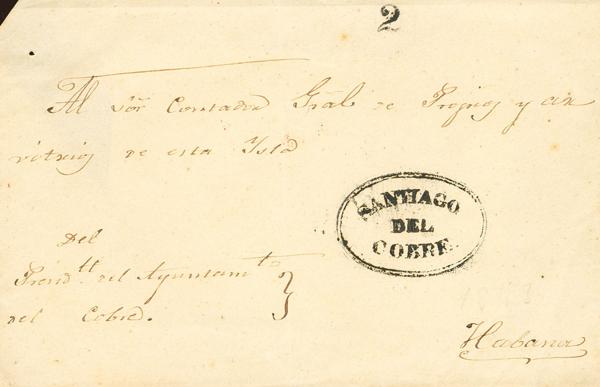 2
Al Sor. Contador Gral de Propios y ar
vitrios de esta Ysla
SANTIAGO
DEL
COBRE.
Del
Presidte. del Ayuntamto
del Cobre.
Habana